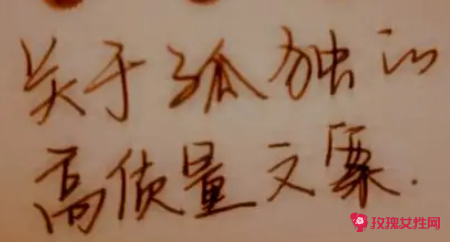 关于孤独的
高质量文案.
玫瑰女性网